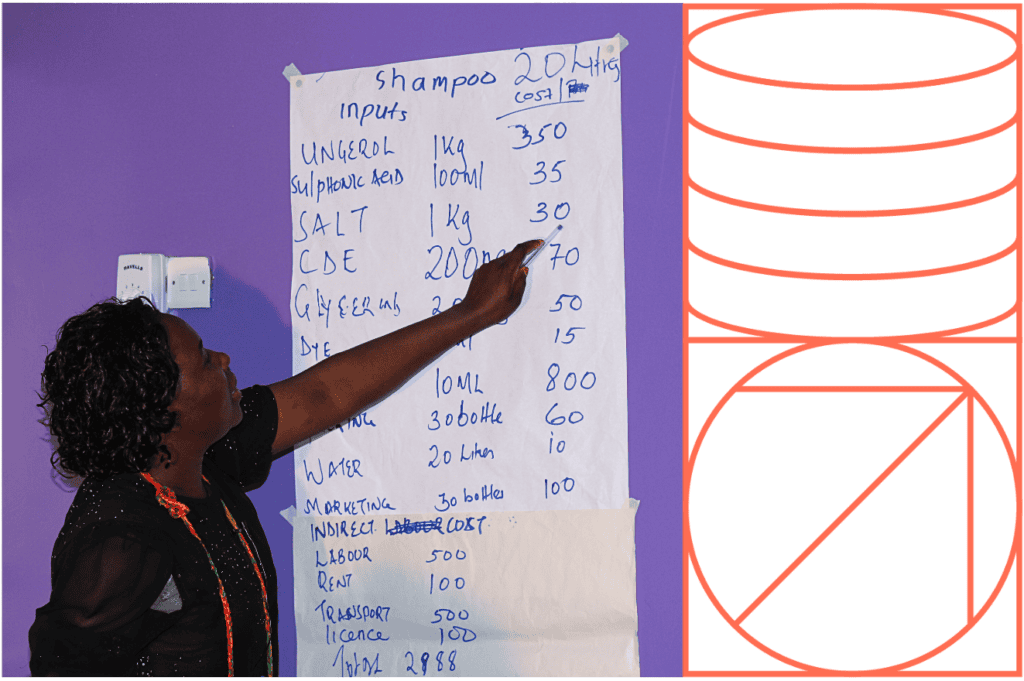 Shampoo 20 Litrs
inputs cost/
UNGEROL 1Kg 350
Sulphonic ACID 100ml 35
SALT 1Kg 30
CDE 200 70
50
DYE 15
10ML 800
30 bottle 60
WATER 20 Litres 10
MARKETING 30 bottles 100
INDIRECT COST.
LABOUR 500
RENT 100
TRANSPORT 500
licence 100
Total 2988
HAVELLS